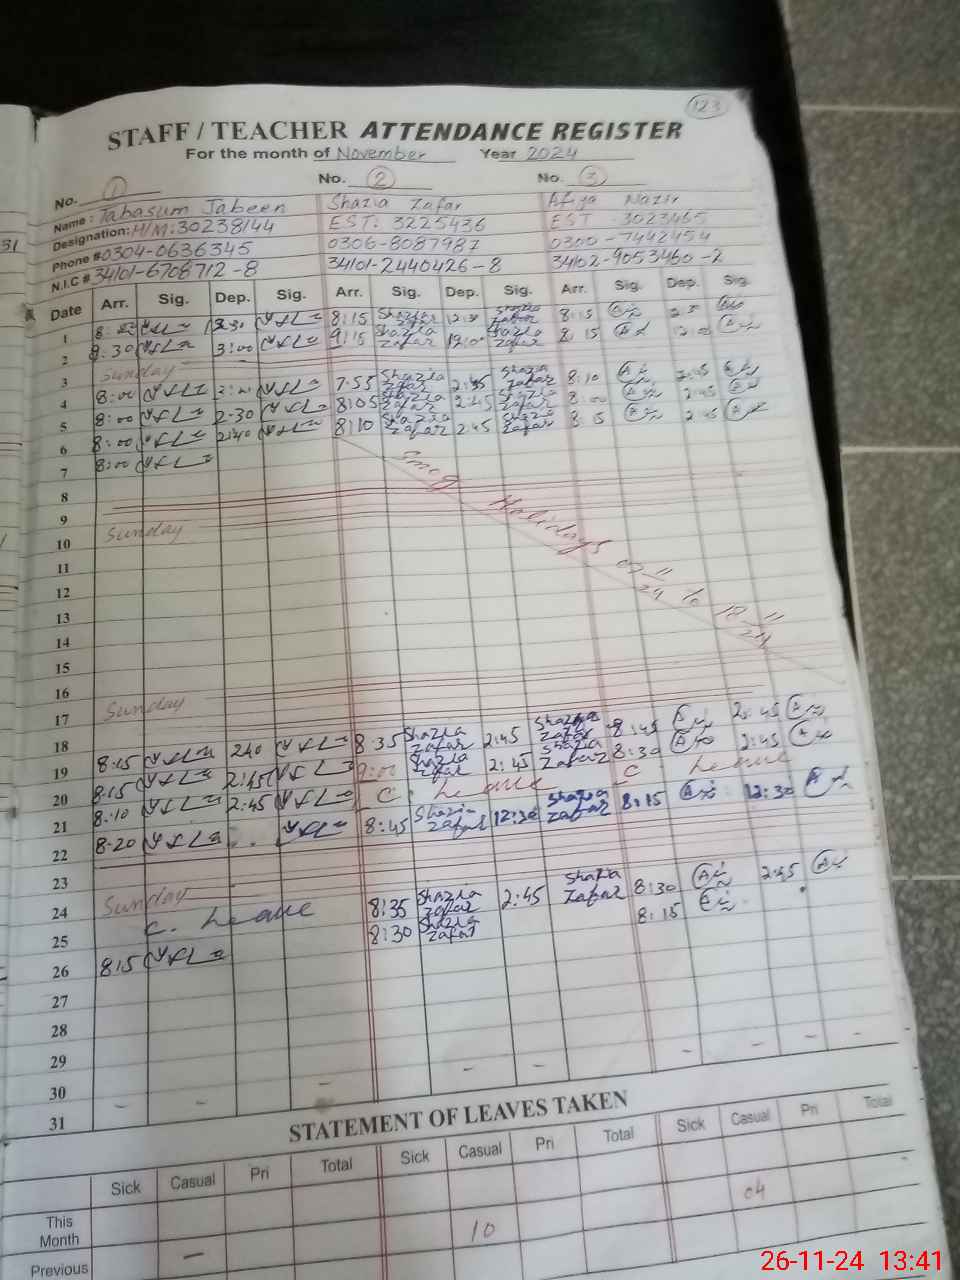 123
STAFF / TEACHER ATTENDANCE REGISTER
For the month of November Year 2024
No. 1 No. 2 No. 3
Name: Tabasum Jabeen Shazia Zafar Afiya Nazir
Designation: H/M: 30238144 EST: 3225436 EST 3023465
Phone # 0304-0636345 0306-8087987 0300-7442454
N.I.C # 34101-6708712-8 34101-2440426-8 34102-9053460-2
Date Arr. Sig. Dep. Sig. Arr. Sig. Dep. Sig. Arr. Sig. Dep. Sig.
1 12:30 8:15 Shazia Zafar 12:30 Shazia Zafar 8:15
2 8:30 3:00 9:15 Shazia Zafar Shazia Zafar 8:15
3 Sunday
4 8:00 7:55 Shazia Zafar 2:45 Shazia Zafar 8:10 2:45
5 8:00 2:30 8:05 Shazia Zafar 2:45 Shazia Zafar 8:00 2:45
6 8:00 2:40 8:10 Shazia Zafar 2:45 Shazia Zafar 8:15 2:45
7 8:00
Smog Holidays 07-11-24 to
8
9
10 Sunday
11
12
13
14
15
16
17 Sunday
18
19 8:15 2:40 8:35 Shazia Zafar 2:45 Shazia Zafar 8:45 2:45
20 8:15 2:45 9:00 Shazia Zafar 2:45 Shazia Zafar 8:30 2:45
21 8:10 2:45 C. Leave C Leave
22 8:20 8:45 Shazia Zafar 12:30 Shazia Zafar 8:15 12:30
23
24 Sunday
25 C. Leave 8:35 Shazia Zafar 2:45 Shazia Zafar 8:30 2:45
26 8:15 8:30 Shazia Zafar 8:15
27
28
29
30
31
STATEMENT OF LEAVES TAKEN
Sick Casual Pri Total Sick Casual Pri Total Sick Casual Pri Total
This Month 10 04
Previous
26-11-24 13:41